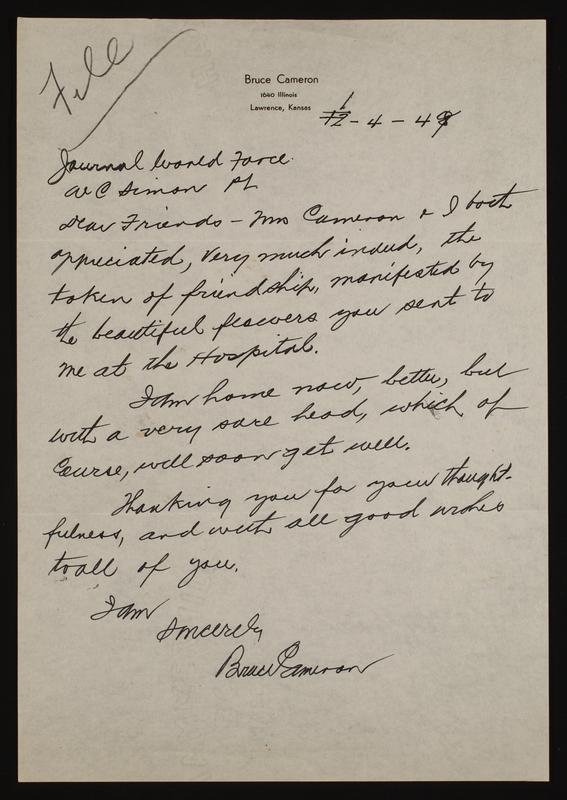 File
Bruce Cameron
1640 Illinois
Lawrence, Kansas
1-4-49
Journal World Force
W C Simon Pt
Dear Friends - Mrs Cameron & I both
appreciated, very much indeed, the
token of friendship, manifested by
the beautiful flowers you sent to
me at the Hospital.
I am home now, better, but
with a very sore head, which of
course, will soon get well.
Thanking you for your thought-
fulness, and with all good wishes
to all of you.
I am
Sincerely
Bruce Cameron